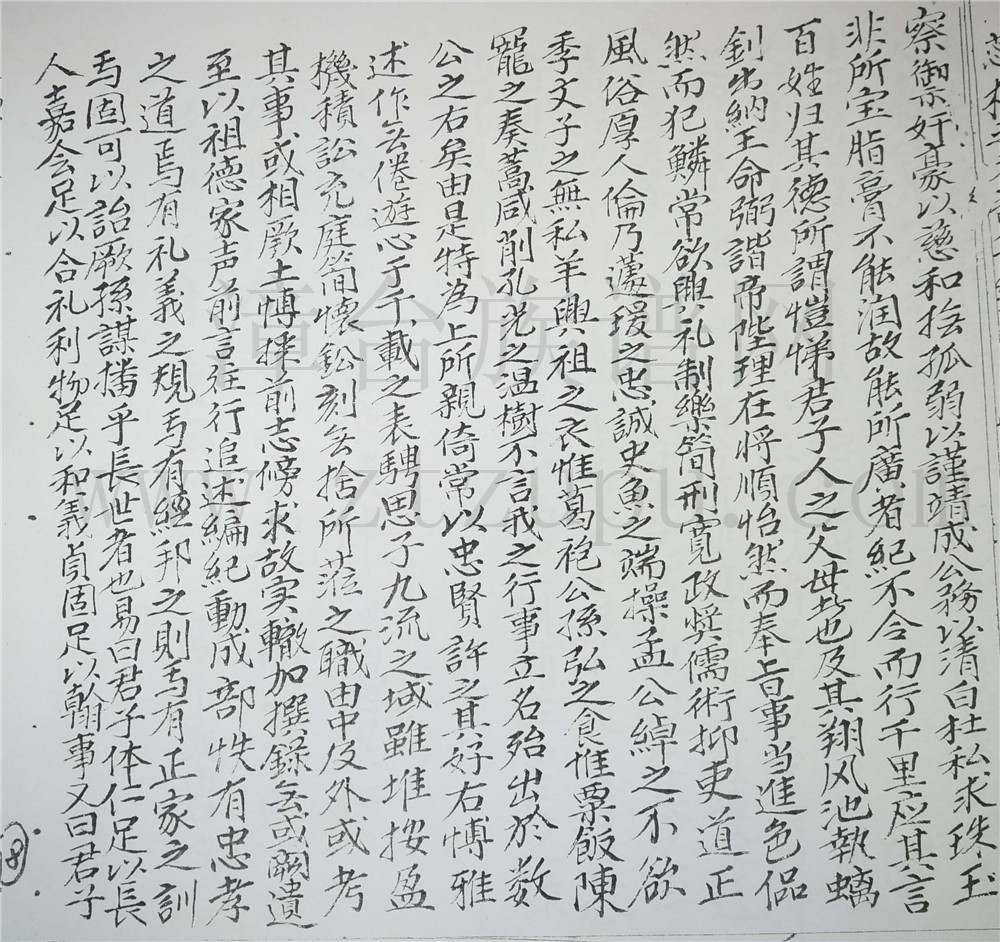 察御奸豪以慈和撫孤弱以謹靖成公務以清白杜私求珠玉
非所宝脂膏不能润故能所廣者紀不令而行千里应其言
百姓归其德所謂愷悌君子人之父母者也及其翔风池執螭
釗出納王命弼諧帝陛理在将順怡然而奉旨事当進色侃
然而犯鱗常欲興礼制樂簡刑寛政奨儒術抑吏道正
風俗厚人倫乃蘧瑗之忠誠史魚之端操孟公綽之不欲
季文子之無私羊興祖之衣惟葛袍公孫弘之食惟粟飯陳
寵之奏蒿咸削孔光之温樹不言我之行事立名殆出於数
公之右矣由是特為上所親倚常以忠賢許之其好右博雅
述作忘倦遊心于千載之表騁思于九流之域雖堆按盈
機積訟充庭簡懐鈆刻無捨所蒞之職由中及外或考
其事或相厥土博採前志傍求故实轍加撰錄無或闕遺
至以祖德家声前言往行追述編紀動成部帙有忠孝
之道焉有礼義之規焉有經邦之則焉有正家之訓
焉固可以詒厥孫謀播乎長世者也易曰君子体仁足以長
人嘉会足以合礼利物足以和義貞固足以翰事又曰君子
8
漳台族譜网
www.ztzupu.com